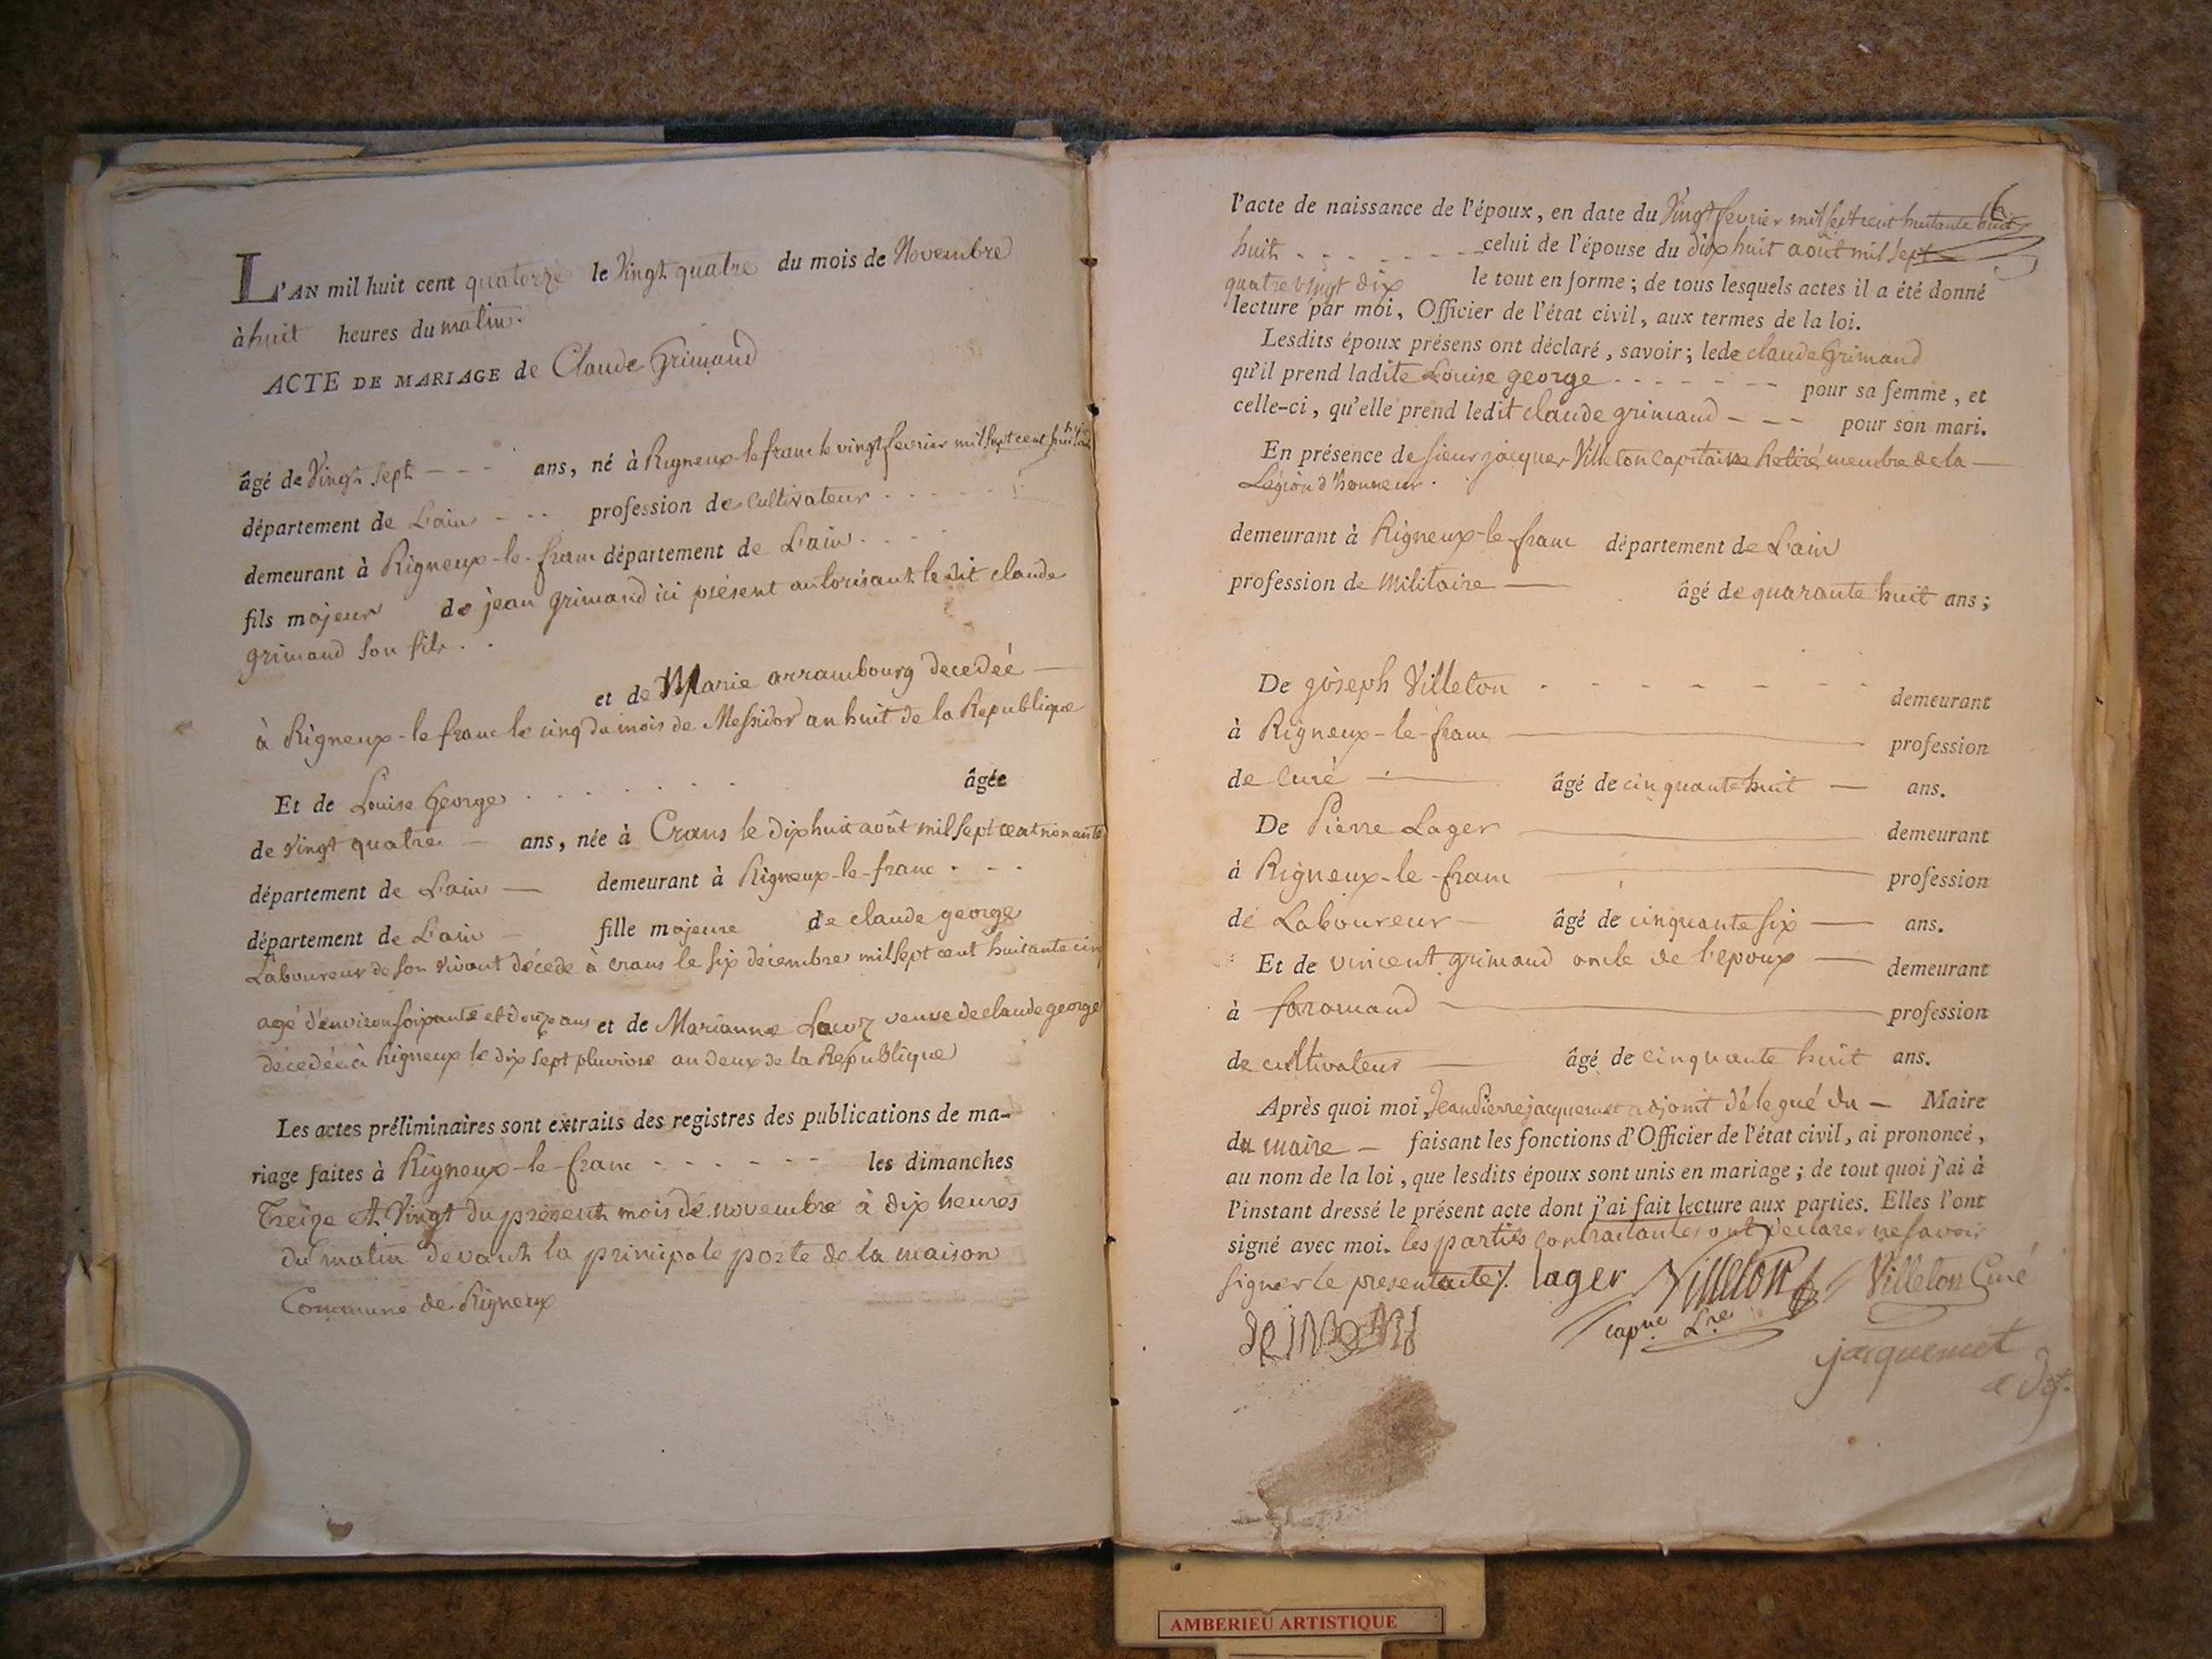 L'AN mil huit cent quatorze le Vingt quatre du mois de Novembre
à huit heures du matin.
ACTE DE MARIAGE de Claude Grimand
âgé de Vingt sept ans, né à Rigneux-le franc le vingt fevrier mil sept cent
département de L'ain profession de Cultivateur
demeurant à Rigneux-le-franc département de L'ain
fils majeur de jean grimand ici présent autorisant le dit claude
grimand son fils
et de Marie arrambourg decedéé
à Rigneux-le franc le cinq du mois de Messidor an huit de la Republique
Et de Louise George âgée
de Vingt quatre ans, née à Crans le dix huit août mil sept cent nonante
département de L'ain demeurant à Rigneux-le-franc
département de L'ain fille majeure de claude george
Laboureur de son vivant décédé à crans le six décembre mil sept cent huitante cinq
agé d'environ soixante et douze ans et de Marianne veuve de claude george
décedée à Rigneux le dix sept pluviose an deux de la Republique
Les actes préliminaires sont extraits des registres des publications de ma-
riage faites à Rigneux-le-franc les dimanches
Treize et Vingt du present mois de novembre à dix heures
du matin devant la principale porte de la maison
Commune de Rigneux
6
l'acte de naissance de l'époux, en date du Vingt fevrier mil sept cent huitante huit
huit celui de l'épouse du dix huit août mil sept
quatre vingt dix le tout en forme ; de tous lesquels actes il a été donné
lecture par moi, Officier de l'état civil, aux termes de la loi.
Lesdits époux présens ont déclaré, savoir ; le de claude Grimand
qu'il prend ladite Louise george pour sa femme, et
celle-ci, qu'elle prend ledit claude grimand pour son mari.
En présence de sieur jacques Villeton Capitaine Retiré membre de la
Légion d'honneur.
demeurant à Rigneux-le-franc département de L'ain
profession de Militaire âgé de quarante huit ans ;
De joseph Villeton demeurant
à Rigneux-le-franc profession
de Curé âgé de cinquante huit ans.
De Pierre Lager demeurant
à Rigneux-le-franc profession
de Laboureur âgé de cinquante six ans.
Et de vincent grimand oncle de l'epoux demeurant
à faramand profession
de cultivateur âgé de cinquante huit ans.
Après quoi moi, Jean Pierre jacquemet adjoint délegué du Maire
du maire faisant les fonctions d'Officier de l'état civil, ai prononcé,
au nom de la loi, que lesdits époux sont unis en mariage ; de tout quoi j'ai à
l'instant dressé le présent acte dont j'ai fait lecture aux parties. Elles l'ont
signé avec moi. les parties contractantes ont declarer ne savoir
signer le present acte. lager Villeton Villeton Curé
capne Lre
jacquemet
adjt.
AMBERIEU ARTISTIQUE